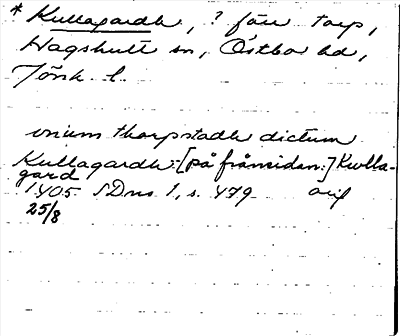 * Kullagardh, ? förr torp,
Hagshult sn, Östbo hd,
Jönk. l.
unum thorpstadh dictum
Kullagardh: [på frånsidan:] Kwlla-
gard
1405 SDns 1, s. 479 orig
25/8